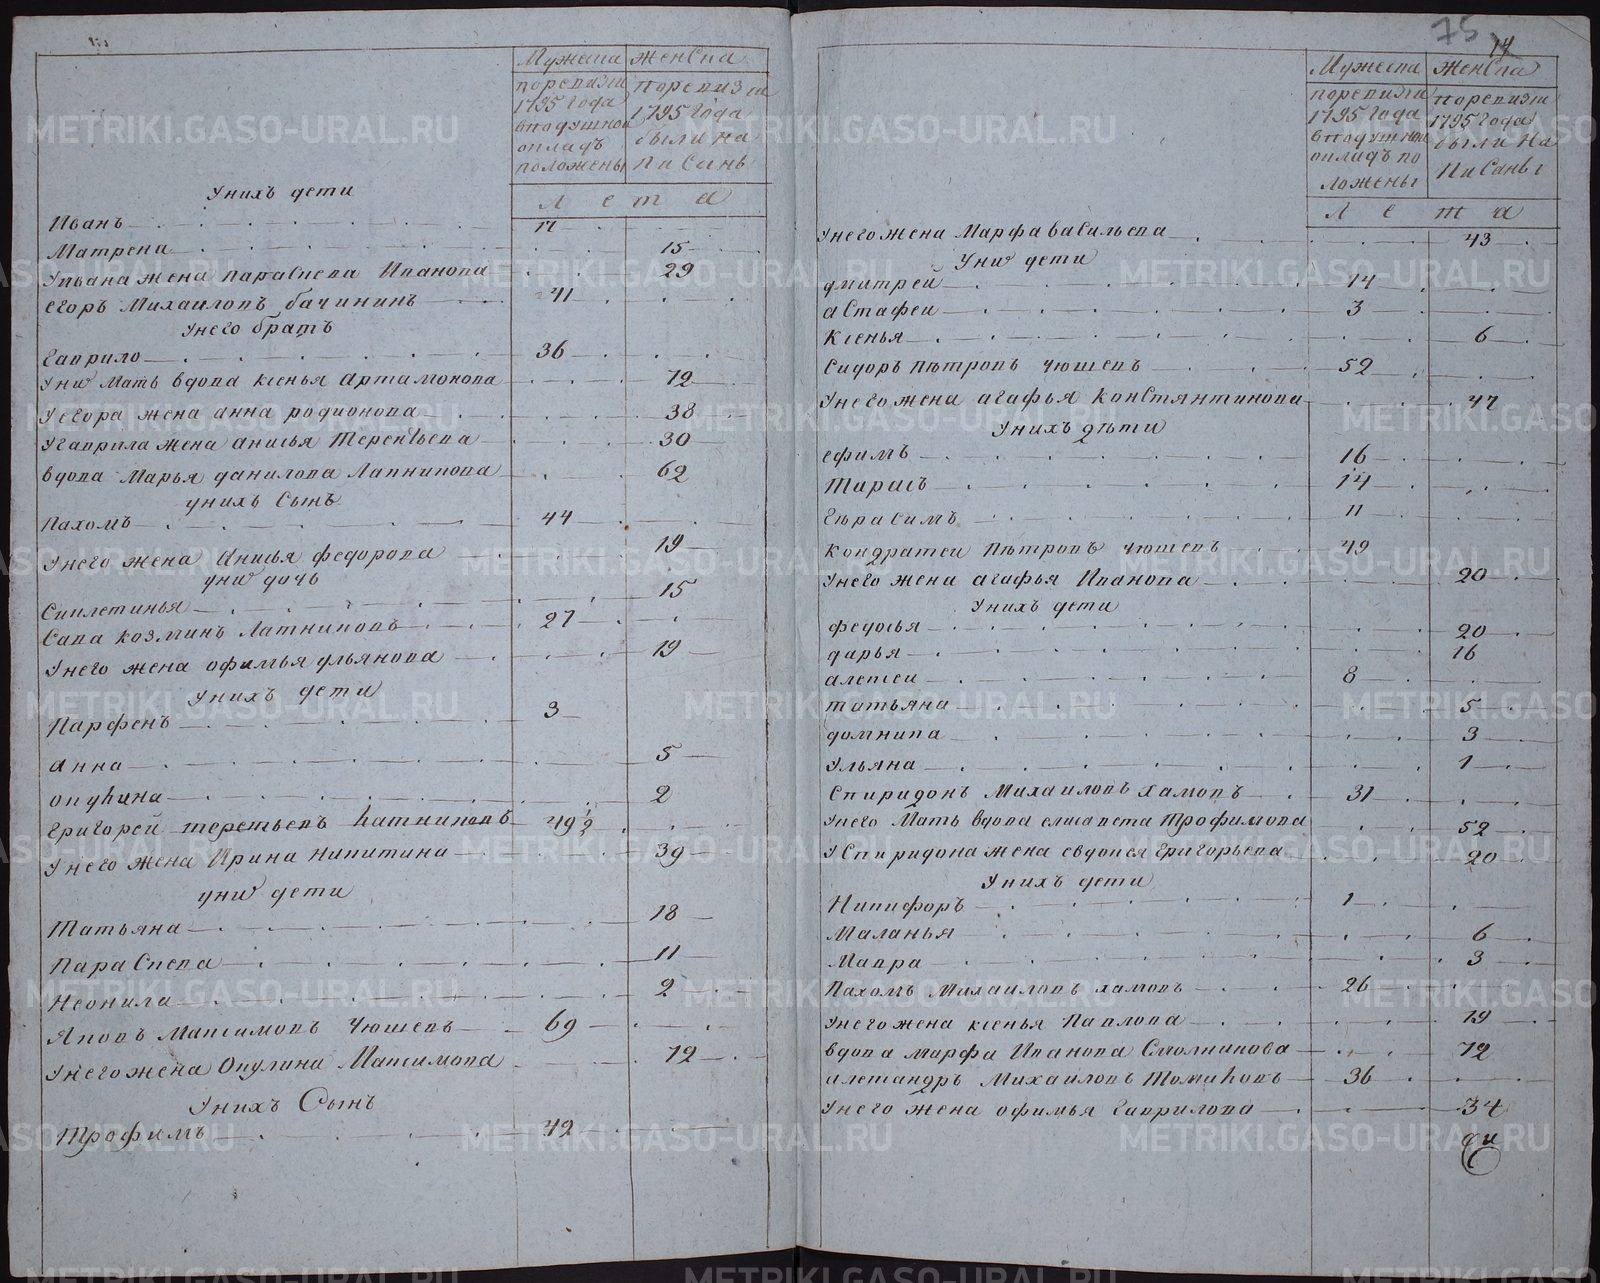 Мужеска женска
поревизии поревизии
1795 года 1795 года
вподушной были на
окладъ писанъ
положены
Л е т а
Униxъ дети
Иванъ 11
Матрена 15
Уивана жена парасковья Иванова 29
Егоръ Михаиловъ бачининъ 41
Унего братъ
Гаврило 36
Унихъ Мать вдова ксенья артамонова 72
Уегора жена анна родионова 38
Угаврила жена анисья Терентьева 30
вдова Марья данилова Латникова 62
унихъ Сынъ
Пахомъ 44
Унего жена Анисья федорова 19
унихъ дочь
Сиклетинья 15
Сава козминъ Латниковъ 27
Унего жена офимья ульянова 19
Унихъ дети
Парфенъ 3
анна 5
окулина 2
Григорей терентьевъ Латниковъ 49
Унего жена Ирина никитина 39
унихъ дети
Татьяна 18
Параскева 11
Неонила 2
Яковъ Максимовъ Чюшевъ 69
Унего жена Окулина Максимова 72
Унихъ Сынъ
Трофимъ 42
75
14
Мужеска женска
поревизии поревизии
1795 года 1795 года
вподушной были на
окладъ по писаны
ложены
Л е т а
Унего жена Марфа васильева 43
Унихъ дети
дмитрей 14
астафеи 3
Ксенья 6
Сидоръ пѣтровъ чюшевъ 52
Унего жена агафья константинова 47
Унихъ дѣти
ефимъ 16
Тарасъ 14
Гѣрасимъ 11
Кондратеи пѣтровъ чюшевъ 49
Унего жена агафья Иванова 20
Унихъ дети
федосья 20
дарья 16
алексеи 8
татьяна 5
домника 3
Ульяна 1
Спиридонъ Михаиловъ хамовъ 31
Унего Мать вдова елисавета трофимова 52
УСпиридона жена евдокея григорьева 20
Унихъ дети
Никифоръ 1
Маланья 6
Мавра 3
Пахомъ Михаиловъ хамовъ 26
Унего жена ксенья Павлова 19
вдова марфа Иванова Смолникова 72
александръ Михаиловъ Томиловъ 36
Унего жена офимья гаврилова 34
METRIKI.GASO-URAL.RU